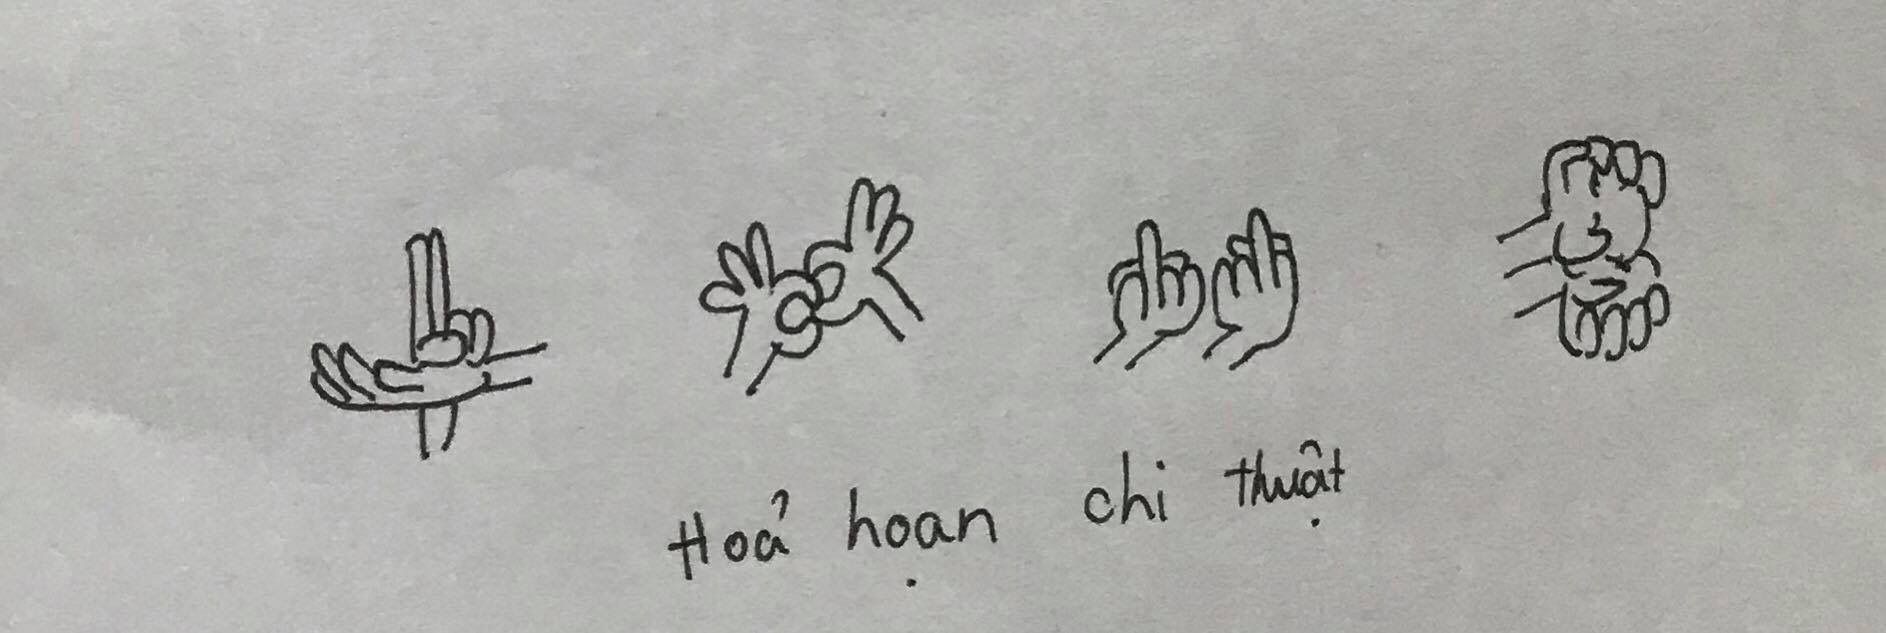 Hoả hoạn chi thuật